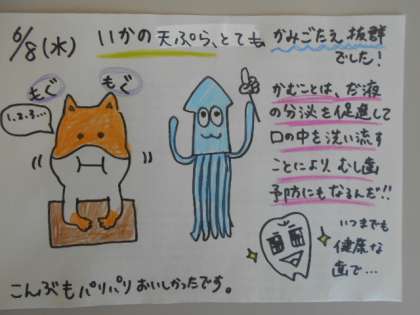 6/8(水)
いかの天ぷら、とても
かみごたえ抜群
でした!
もぐ
もぐ
1,2,3…
かむことは、だ液
の分泌を促進して
口の中を洗い流す
ことにより、むし歯
予防にもなるんだ!!
いつまでも
健康な
歯で…
こんぶもパリパリおいしかったです。